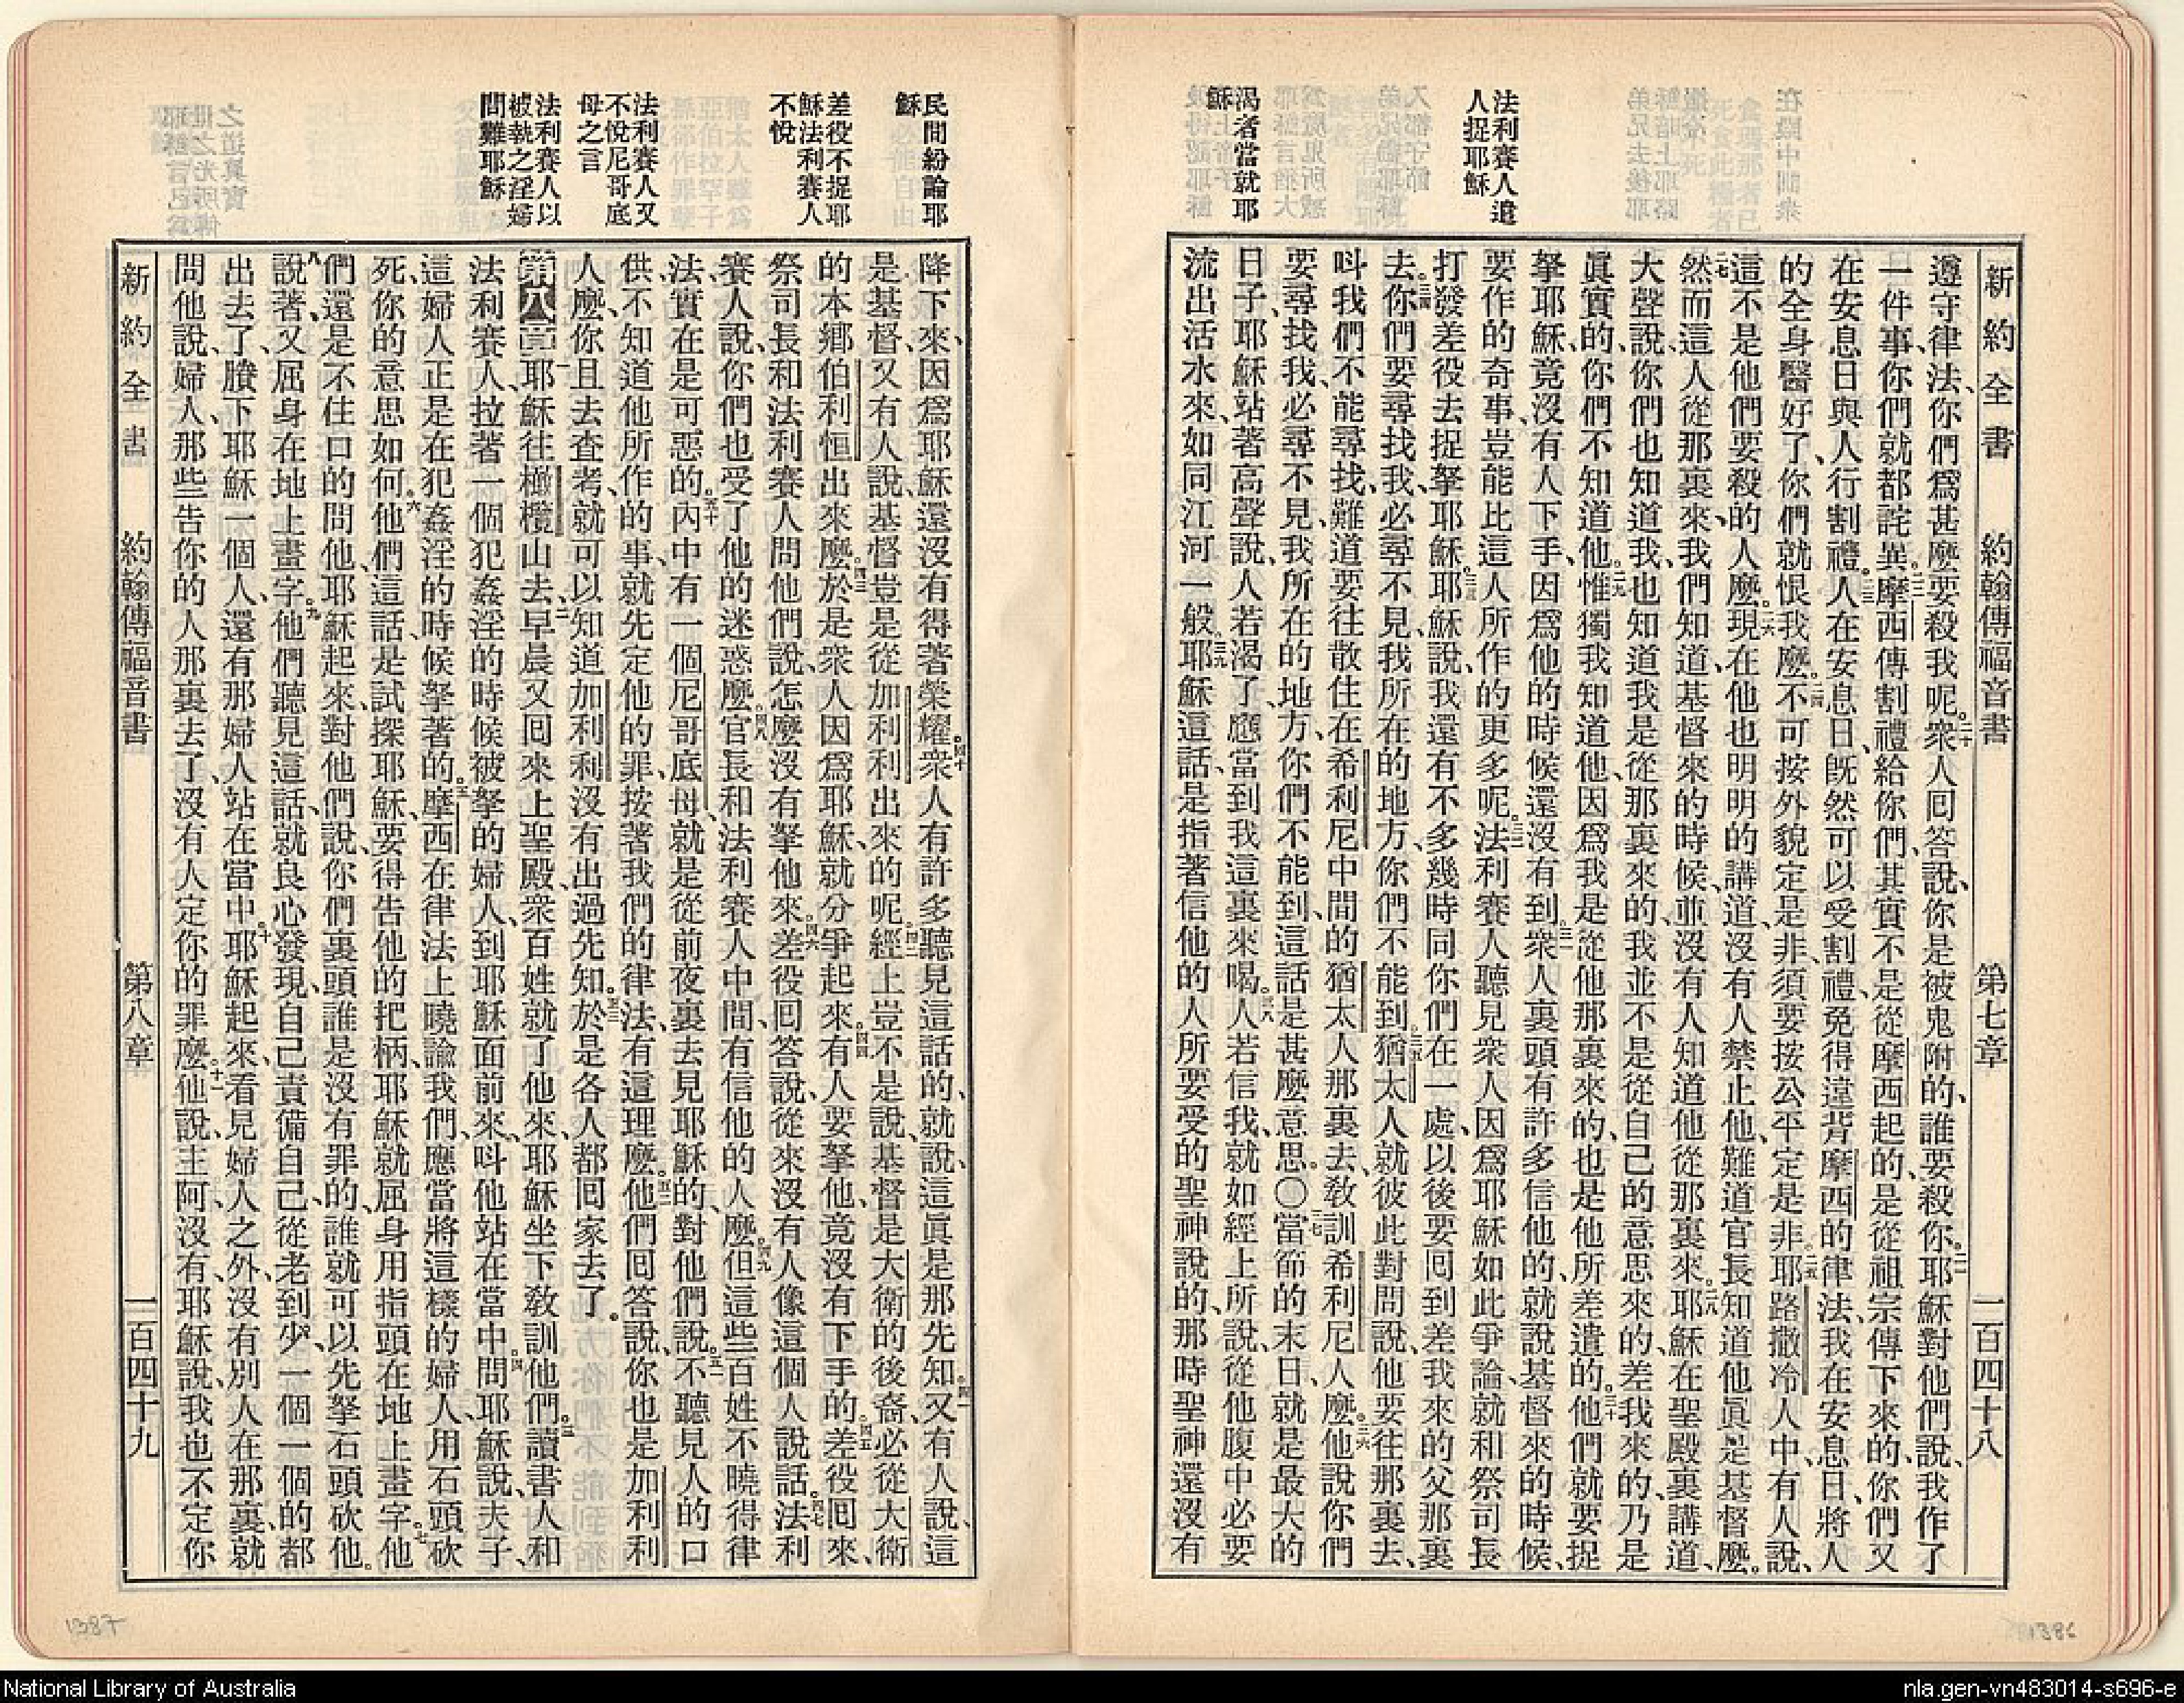 新約全書 約翰傳福音書 第七章 一百四十八
法利賽人遣
人捉耶穌
渴者當就耶
穌
遵守律法、你們爲甚麼要殺我呢。二十衆人囘答說、你是被鬼附的、誰要殺你。二一耶穌對他們說、我作了
一件事、你們就都詫異。二二摩西傳割禮給你們、其實不是從摩西起的、是從祖宗傳下來的、你們又
在安息日與人行割禮。二三人在安息日、旣然可以受割禮、免得違背摩西的律法、我在安息日、將人
的全身醫好了、你們就恨我麼。二四不可按外貌定是非、須要按公平定是非。二五耶路撒冷人中、有人說、
這不是他們要殺的人麼。二六現在他也明明的講道、沒有人禁止他、難道官長知道他眞是基督麼。
二七然而這人從那裏來、我們知道、基督來的時候、並沒有人知道他從那裏來。二八耶穌在聖殿裏講道、
大聲說、你們也知道我、也知道我是從那裏來的、我並不是從自己的意思來的、差我來的、乃是
眞實的、你們不知道他。二九惟獨我知道他、因爲我是從他那裏來的、也是他所差遣的。三十他們就要捉
拏耶穌、竟沒有人下手、因爲他的時候還沒有到。三一衆人裏頭有許多信他的、就說、基督來的時候、
要作的奇事、豈能比這人所作的更多呢。三二法利賽人聽見衆人因爲耶穌如此爭論、就和祭司長
打發差役去捉拏耶穌。三三耶穌說、我還有不多幾時同你們在一處、以後要囘到差我來的父那裏
去。三四你們要尋找我、必尋不見、我所在的地方、你們不能到。三五猶太人就彼此對問說、他要往那裏去、
呌我們不能尋找、難道要往散住在希利尼中間的猶太人那裏去、敎訓希利尼人麼。三六他說你們
要尋找我、必尋不見、我所在的地方、你們不能到、這話是甚麼意思。〇三七當節的末日、就是最大的
日子、耶穌站著高聲說、人若渴了、應當到我這裏來喝。三八人若信我、就如經上所說、從他腹中必要
流出活水來、如同江河一般。三九耶穌這話、是指著信他的人所要受的聖神說的、那時聖神還沒有
民間紛論耶
穌
差役不捉耶
穌法利賽人
不悅
法利賽人又
不悅尼哥底
母之言
法利賽人以
被執之淫婦
問難耶穌
降下來、因爲耶穌還沒有得著榮耀。四十衆人有許多聽見這話的、就說、這眞是那先知。四一又有人說、這
是基督、又有人說、基督豈是從加利利出來的呢。四二經上豈不是說、基督是大衛的後裔、必從大衛
的本鄉伯利恒出來麼。四三於是衆人因爲耶穌、就分爭起來。四四有人要拏他、竟沒有下手的。四五差役囘來、
祭司長和法利賽人問他們說、怎麼沒有拏他來。四六差役囘答說、從來沒有人像這個人說話。四七法利
賽人說、你們也受了他的迷惑麼。四八官長和法利賽人中間、有信他的人麼。四九但這些百姓不曉得律
法、實在是可惡的。五十內中有一個尼哥底母、就是從前夜裏去見耶穌的、對他們說。五一不聽見人的口
供、不知道他所作的事、就先定他的罪、按著我們的律法、有這理麼。五二他們囘答說、你也是加利利
人麼、你且去查考、就可以知道加利利沒有出過先知。五三於是各人都囘家去了。
第八章 一耶穌往橄欖山去。二早晨又囘來上聖殿、衆百姓就了他來、耶穌坐下敎訓他們。三讀書人和
法利賽人、拉著一個犯姦淫的時候被拏的婦人、到耶穌面前來、呌他站在當中。四問耶穌說、夫子、
這婦人正是在犯姦淫的時候拏著的。五摩西在律法上曉諭我們、應當將這樣的婦人、用石頭砍
死、你的意思如何。六他們這話、是試探耶穌、要得告他的把柄、耶穌就屈身用指頭在地上畫字。七他
們還是不住口的問他、耶穌起來、對他們說、你們裏頭誰是沒有罪的、誰就可以先拏石頭砍他。
八說著、又屈身在地上畫字。九他們聽見這話、就良心發現、自己責備自己、從老到少、一個一個的都
出去了、賸下耶穌一個人、還有那婦人站在當中。十耶穌起來、看見婦人之外、沒有別人在那裏、就
問他說、婦人、那些告你的人那裏去了、沒有人定你的罪麼。十一他說、主阿、沒有、耶穌說、我也不定你
新約全書 約翰傳福音書 第八章 一百四十九
1387
1386
National Library of Australia
nla.gen-vn483014-s696-e